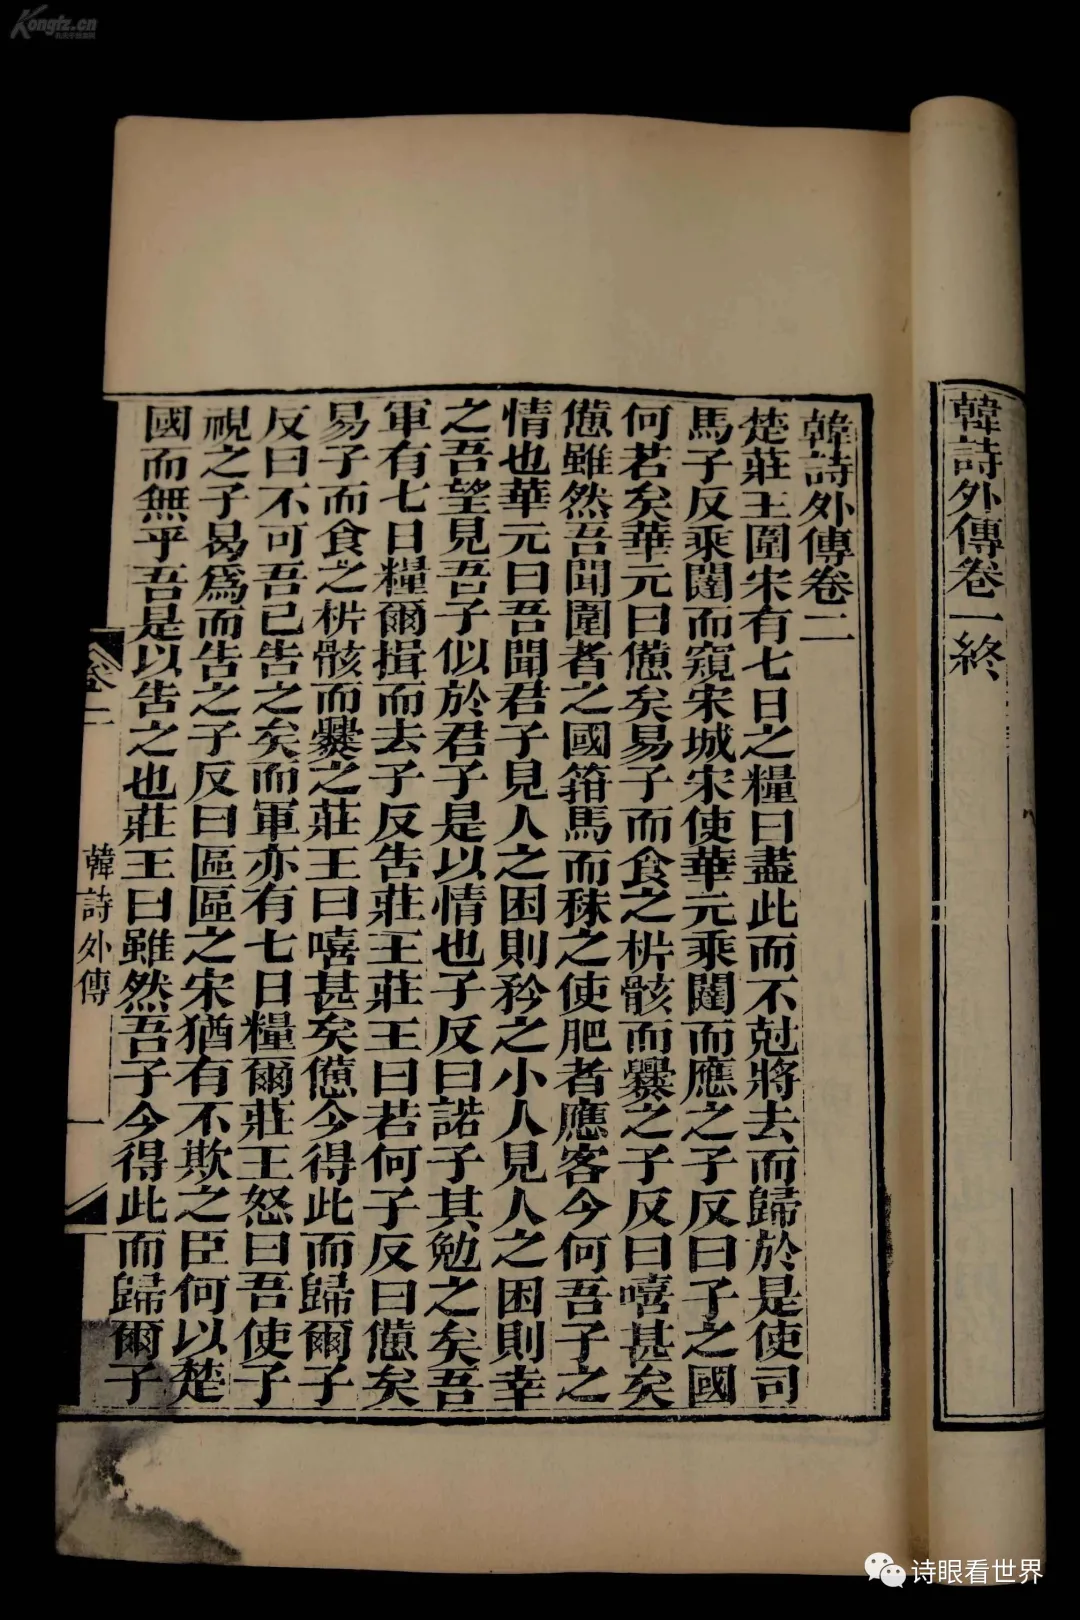 Kongfz.cn
韓詩外傳卷一終
韓詩外傳卷二
楚莊王圍宋有七日之糧曰盡此而不尅將去而歸於是使司
馬子反乘闉而窺宋城宋使華元乘闉而應之子反曰子之國
何若矣華元曰憊矣易子而食之析骸而爨之子反曰嘻甚矣
憊雖然吾聞圍者之國箝馬而秣之使肥者應客今何吾子之
情也華元曰吾聞君子見人之困則矜之小人見人之困則幸
之吾望見吾子似於君子是以情也子反曰諾子其勉之矣吾
軍有七日糧爾揖而去子反告莊王莊王曰若何子反曰憊矣
易子而食之析骸而爨之莊王曰嘻甚矣憊今得此而歸爾子
反曰不可吾已告之矣而軍亦有七日糧爾莊王怒曰吾使子
視之子曷爲而告之子反曰區區之宋猶有不欺之臣何以楚
國而無乎吾是以告之也莊王曰雖然吾子今得此而歸爾子
卷二
韓詩外傳
一
诗眼看世界